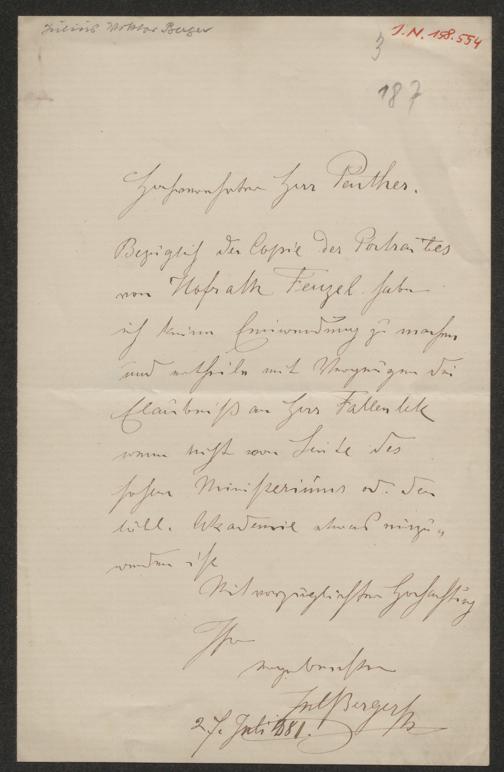 Julius Viktor Berger
J.N. 158.554
3
187
Hochverehrter Herr Penther.
Bezüglich der Copie der Portraites
von Hofrath Fenzel habe
ich keine Einwendung zu machen
und ertheile mit Vergnügen die
Erlaubniß an Herr Fallenbek
wenn nicht von Seite des
hohen Ministeriums od. der
löbl. Akademie etwas einzu„
wenden ist
Mit vorzüglichster Hochachtung
Ihr
ergebenster
JulBerger
27. Juli 881.